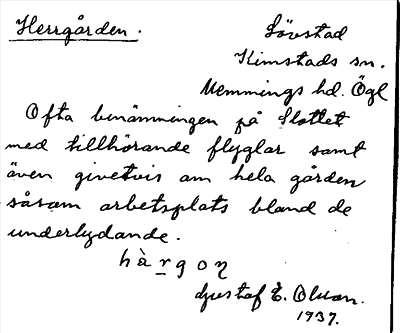 Herrgården. Lövstad
Kimstads sn.
Memmings hd. Ögl
Ofta benämningen på Slottet
med tillhörande flyglar samt
även givetvis om hela gården
såsom arbetsplats bland de
underlydande.
hàrgoƞ
Gustaf E. Olsson.
1937.